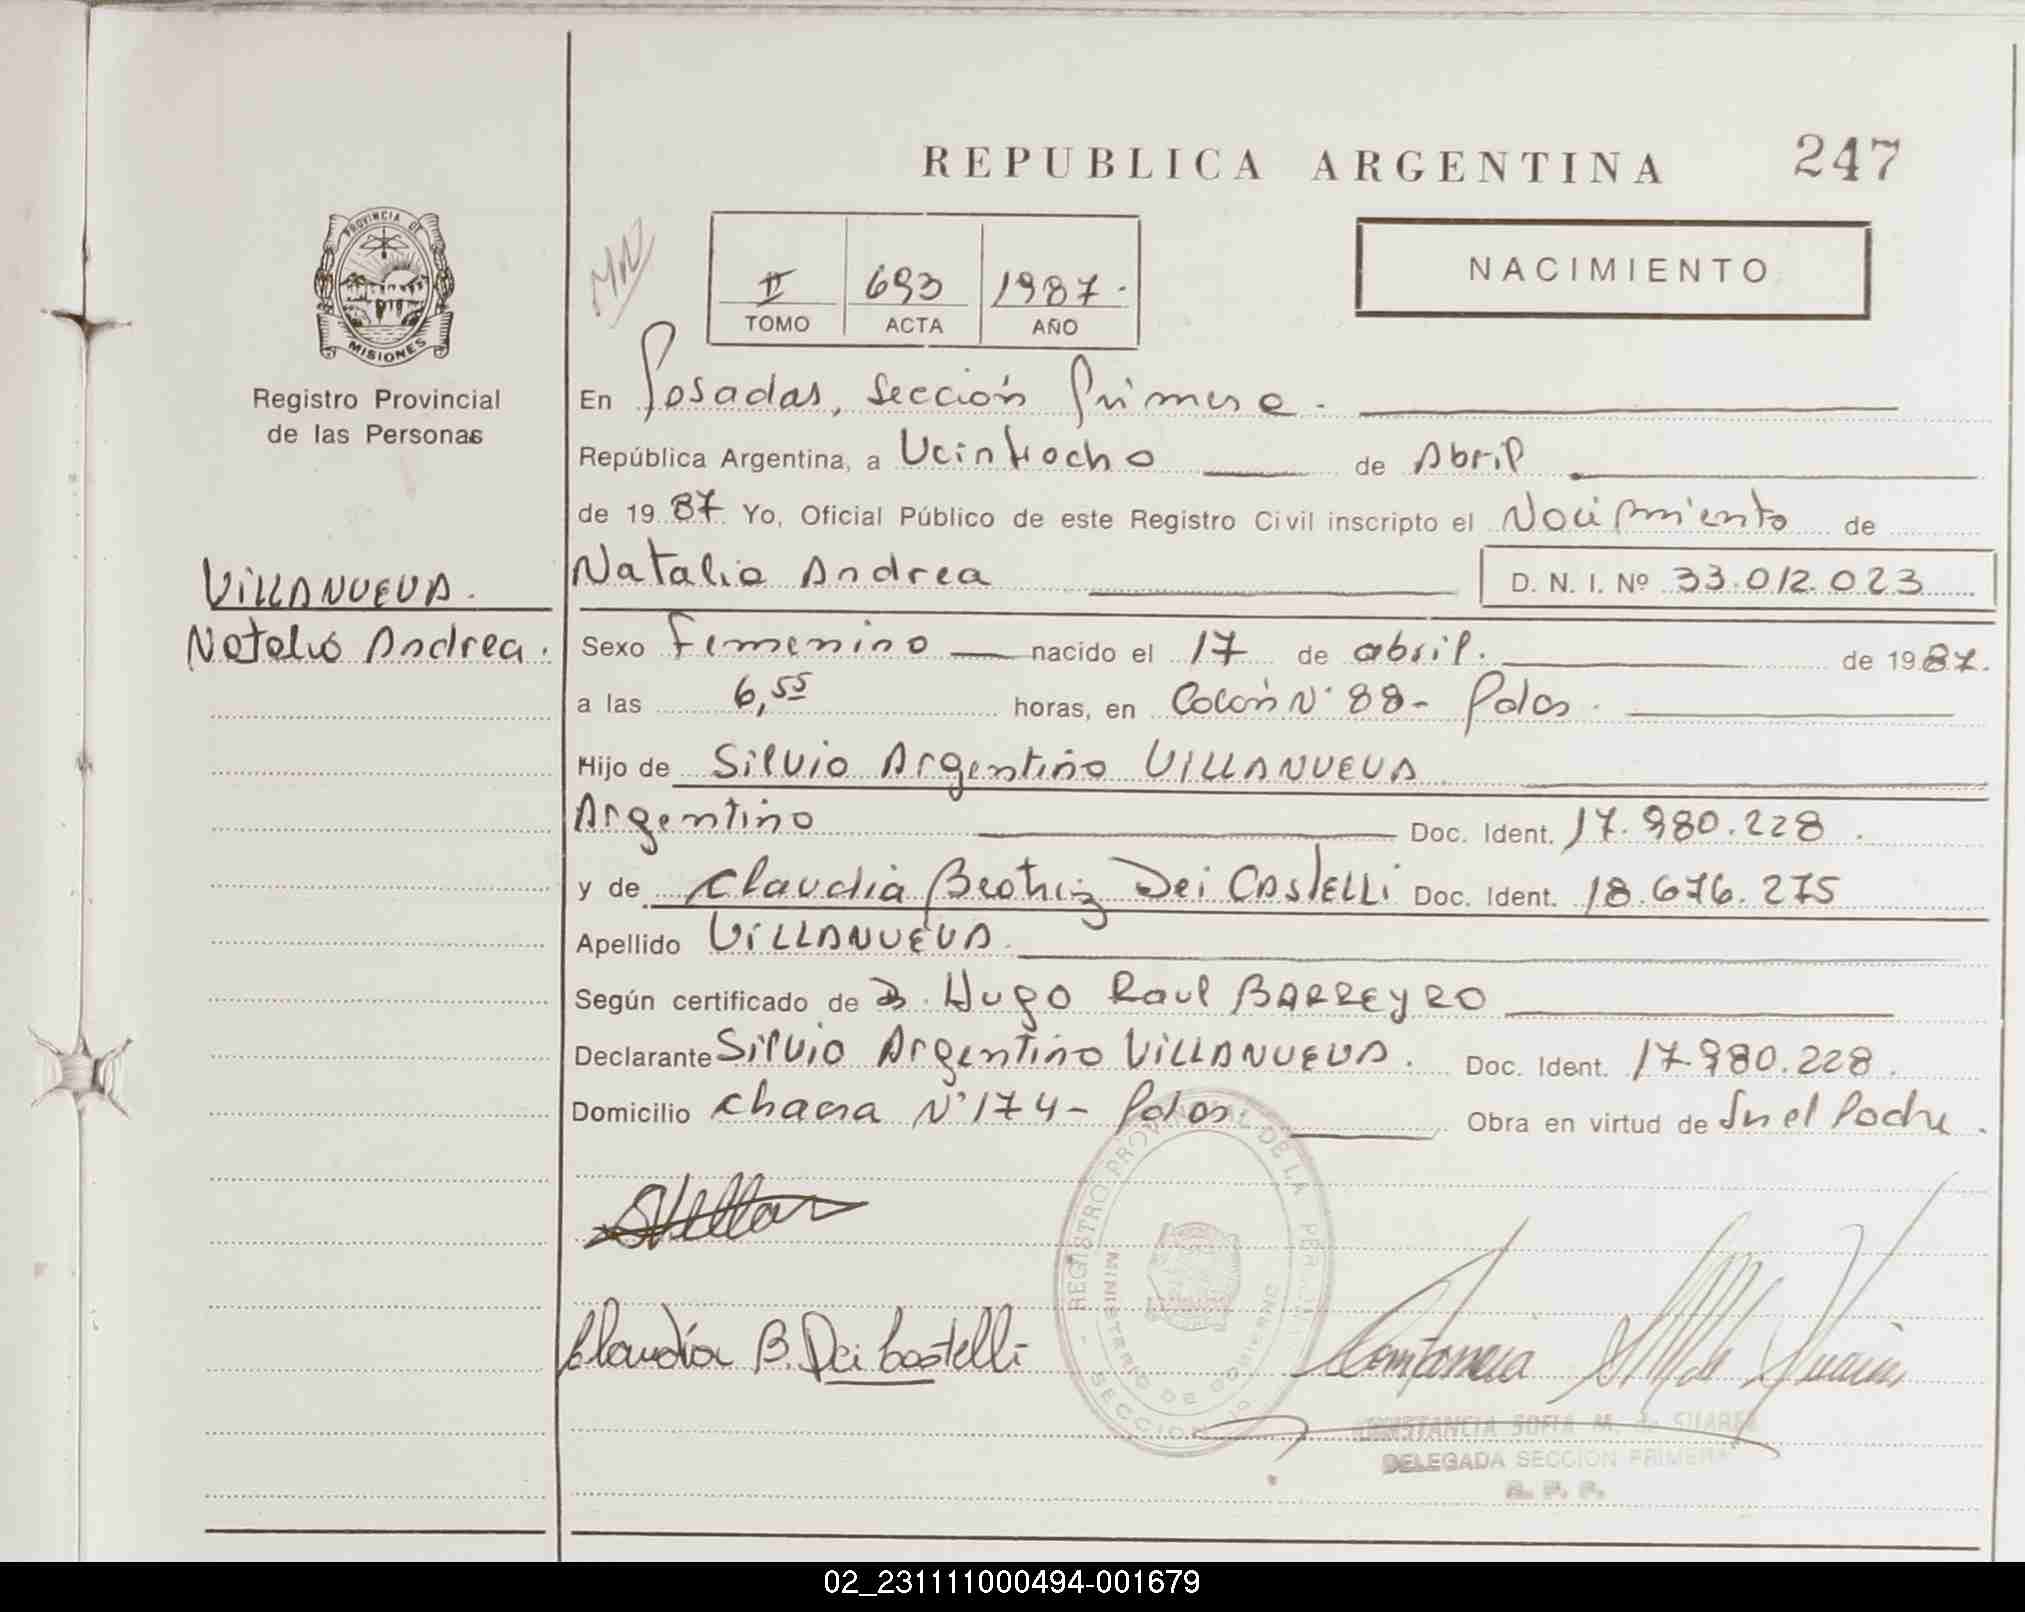 REPUBLICA ARGENTINA 247
PROVINCIA DE
MISIONES
Registro Provincial
de las Personas
II 693 1987.
TOMO ACTA AÑO
NACIMIENTO
En Posadas, Sección Primera.
República Argentina, a Veintiocho de Abril
de 1987 Yo, Oficial Público de este Registro Civil inscripto el Nacimiento de
VILLANUEVA.
Natalia Andrea.
Natalia Andrea D. N. I. Nº 33.012.023
Sexo Femenino nacido el 17 de abril. de 1987.
a las 6,55 horas, en Colón Nº 88- Pdas.
Hijo de Silvio Argentino VILLANUEVA
Argentino Doc. Ident. 17.980.228.
y de Claudia Beatriz Dei CASTELLI Doc. Ident. 18.676.275
Apellido VILLANUEVA.
Según certificado de D. Hugo Raul BARREYRO
Declarante Silvio Argentino VILLANUEVA. Doc. Ident. 17.980.228.
Domicilio Chacra Nº 174- Pdas. Obra en virtud de Ser el Padre.
REGISTRO PROVINCIAL DE LA
MINISTERIO DE GOBIERNO
SECCION
Claudia B. Dei Castelli
CONSTANCIA SOFIA M. de SUAREZ
DELEGADA SECCION PRIMERA
R. P. P.
02_231111000494-001679